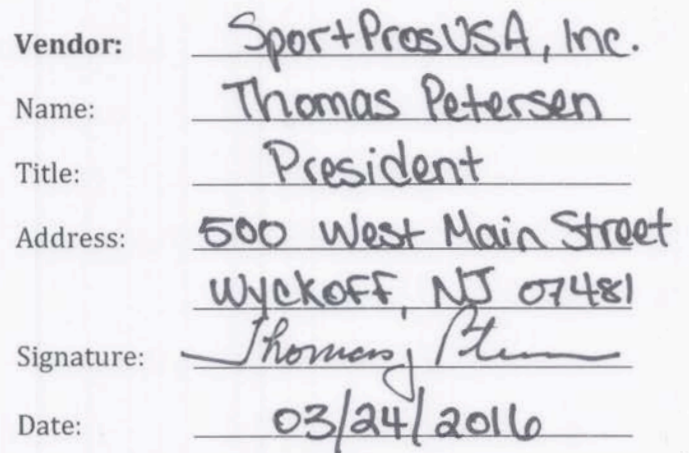 Vendor: SportProsUSA, Inc.
Name: Thomas Petersen
Title: President
Address: 500 West Main Street
Wyckoff, NJ 07481
Signature: Thomas J Petersen
Date: 03/24/2016